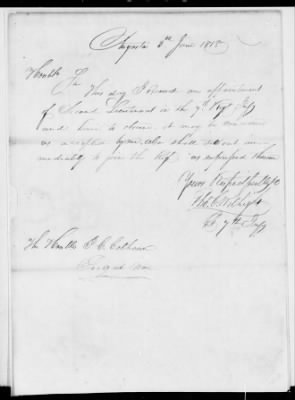 Augusta 3rd June 1818
Honble Sir
This day I received an appointment
of Second Lieutenant in the 7th Regt Infy
and have to observe, it may be considered
as accepted by me, also shall set out im-
mediately to join the Regt as expressed therein
Yours Respectfully
Lt. 7th Infy
The Honble J. C. Calhoun